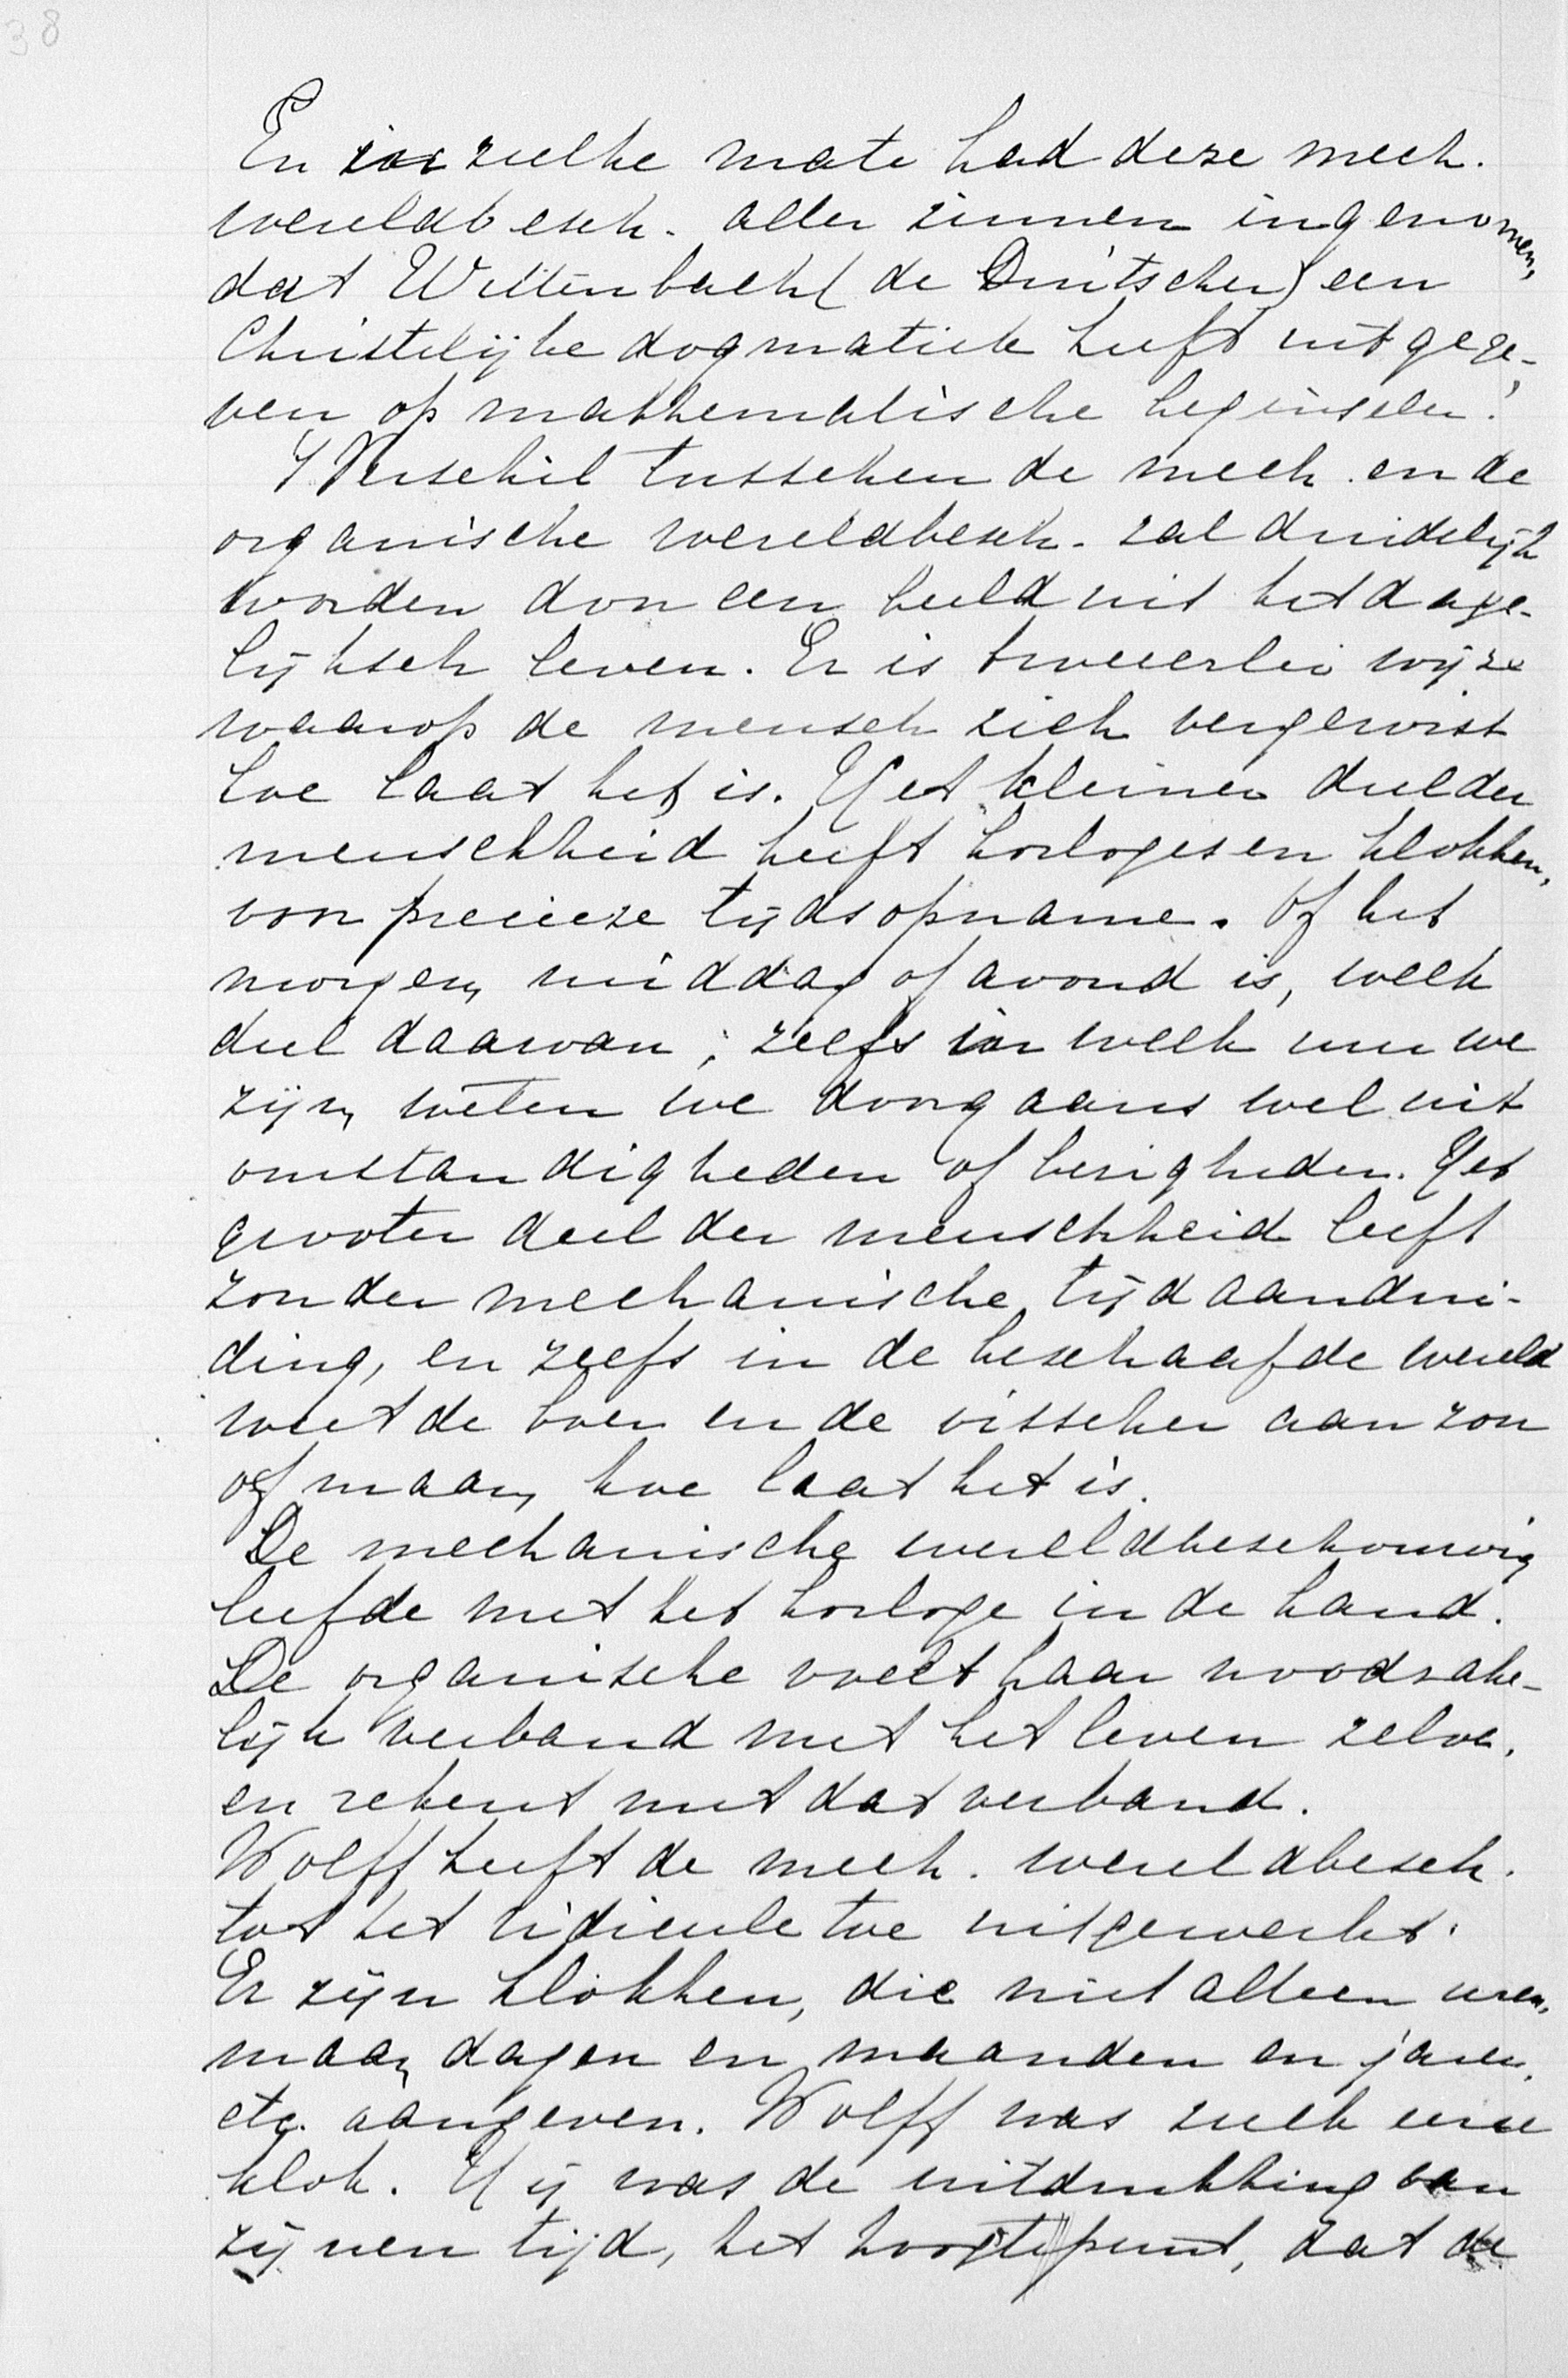 38
En in zulke mate had deze mech.
wereldbesch. aller zinnen ingenomen,
dat Wittenbach (de Duitscher) een
Christelijke dogmatiek heeft uitgege-
ven op mathematische beginselen!
't Verschil tusschen de mech. en de
organische wereldbesch. zal duidelijk
worden door een beeld uit het dage-
lijksch leven. Er is tweeerlei wijze
waarop de mensch zich vergewist
hoe laat het is. Het kleiner deel der
menschheid heeft horloges en klokken,
voor precieze tijdsopname. Of het
morgen, middag of avond is, welk
deel daarvan; zelfs in welk uur we
zijn, weten we doorgaans wel uit
omstandigheden of bezigheden. Het
grooter deel der menschheid leeft
zonder mechanische tijdaandui-
ding, en zelfs in de beschaafde wereld
weet de boer en de visscher aan zon
of maan, hoe laat het is.
De mechanische wereldbeschouwing
leefde met het horloge in de hand.
De organische voelt haar noodzake-
lijk verband met het leven zelve,
en rekent met dat verband.
Wolff heeft de mech. wereldbesch.
tot het ridicule toe uitgewerkt.
Er zijn klokken, die niet alleen uren,
maar dagen en maanden en jaren,
etc. aangeven. Wolff was zulk eene
klok. Hij was de uitdrukking van
zijnen tijd, het hoogtepunt, dat de